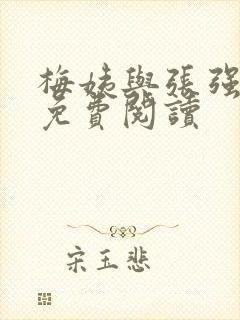 梅姨與張强
免費閱讀
宋玉悲